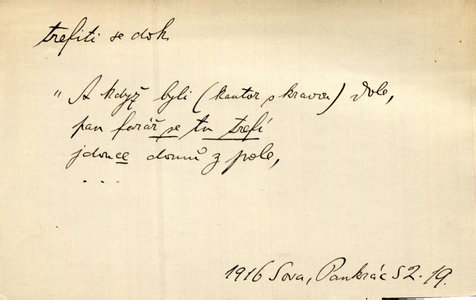 trefiti se dok.
„A když byli (kantor s kravou) dole,
pan farář se tu trefí
jdouce domů z pole,
...
1916 Sova, Pankrác 52. 19.